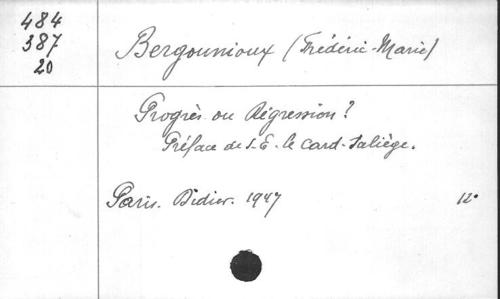 484
387
20
Bergounioux (Frédéric-Marie)
Progrès ou Régression?
Préface de S.E. le Card. Saliège.
Paris. Didier. 1947 12°